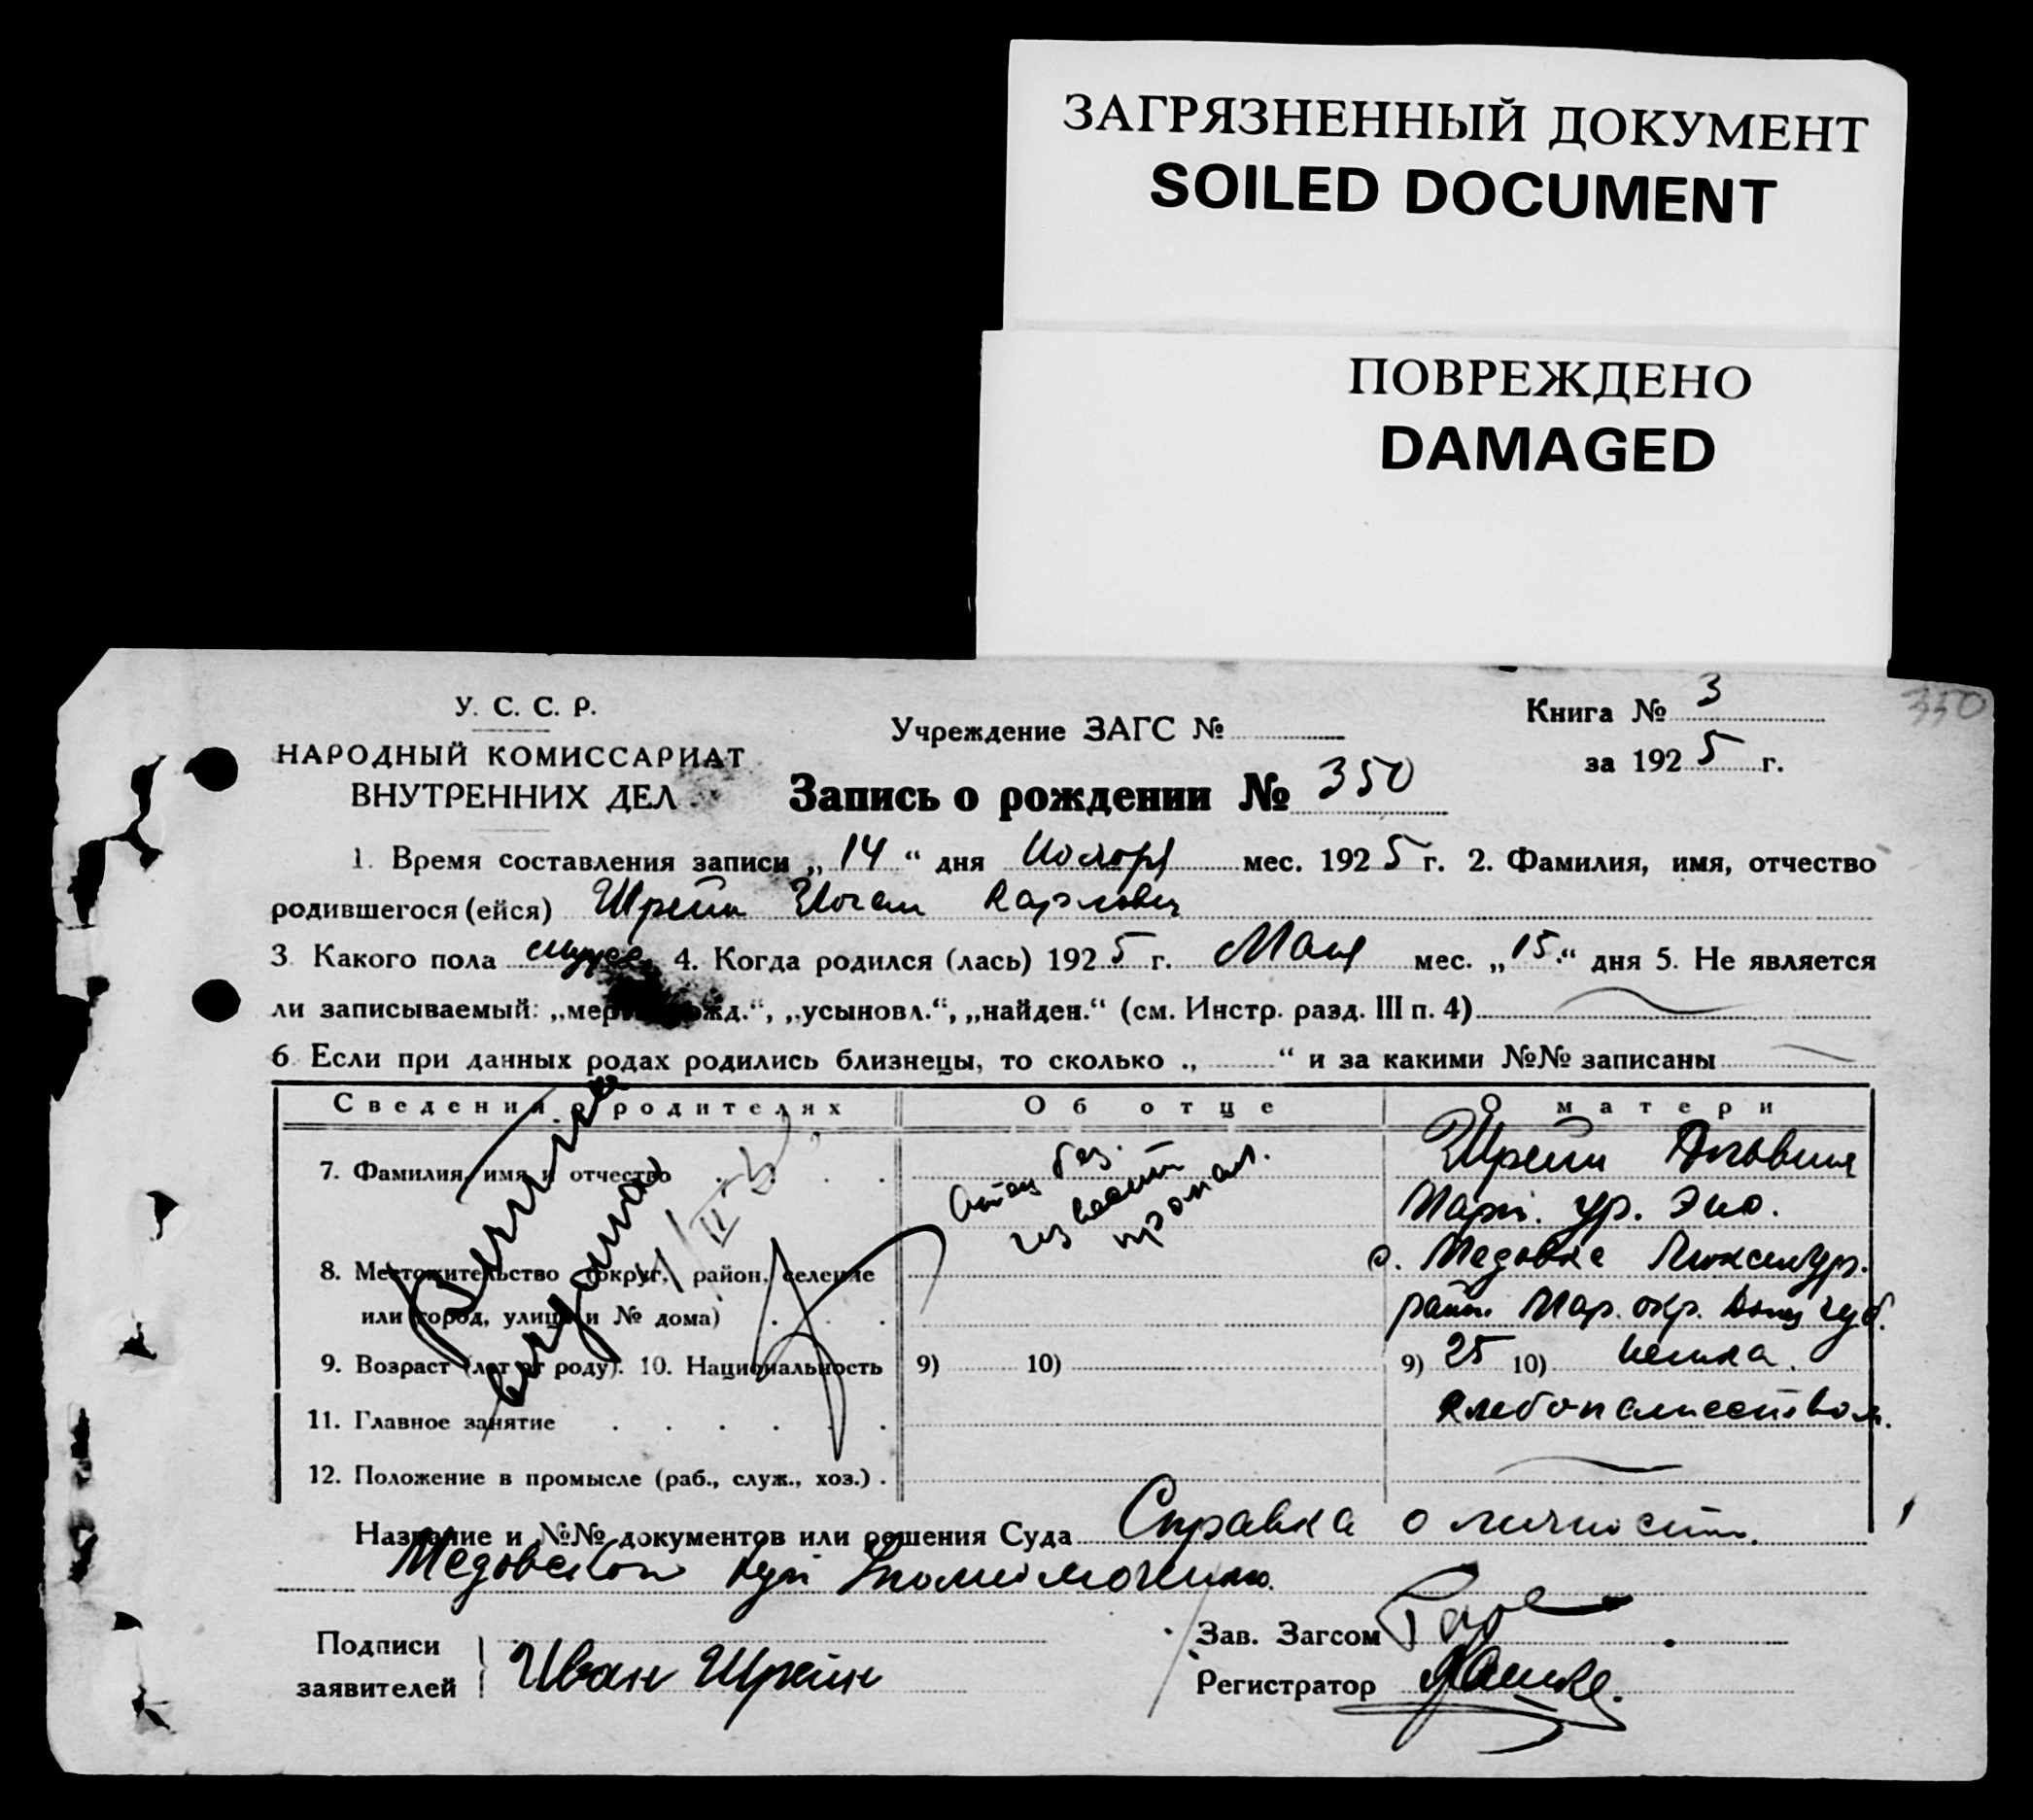 ЗАГРЯЗНЕННЫЙ ДОКУМЕНТ
SOILED DOCUMENT
ПОВРЕЖДЕНО
DAMAGED
350
У. С. С. Р.
НАРОДНЫЙ КОМИССАРИАТ
ВНУТРЕННИХ ДЕЛ
Учреждение ЗАГС №
Книга № 3
за 1925 г.
Запись о рождении № 350
1. Время составления записи „14“ дня Ноября мес. 1925 г. 2. Фамилия, имя, отчество
родившегося (ейся) Шрейн Иоган Карлович
3. Какого пола мужск. 4. Когда родился (лась) 1925 г. Мая мес. „15“ дня 5. Не является
ли записываемый: „мер ожд.“, „усыновл.“, „найден.“ (см. Инстр. разд. III п. 4)
6. Если при данных родах родились близнецы, то сколько „ “ и за какими №№ записаны
Сведения о родителях Об отце О матери
7. Фамилия, имя и отчество
Отец без
известт
пропал.
Шрейн
Мари. ур.
8. Местожительство (округ, район, селение
или город, улица и № дома)
с. Медовка Люксембург.
район Мар. окр. Донец губ.
9. Возраст (лет от роду). 10. Национальность 9) 10) 9) 25 10) немка.
11. Главное занятие
хлебопашеством.
12. Положение в промысле (раб., служ., хоз.)
Название и №№ документов или решения Суда Справка о личности
Медовской
Подписи
заявителей
Иван Шрейн
Зав. Загсом
Регистратор